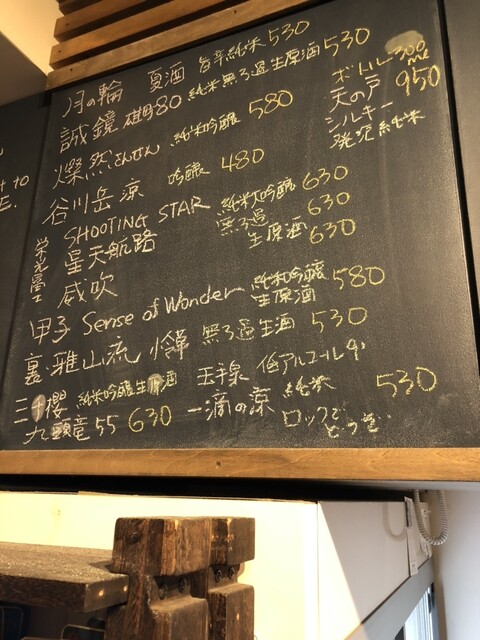 月の輪 夏酒 旨辛純米 530
誠鏡 雄町80 純米無ろ過生原酒 530
燦然さんぜん 純米吟醸 580
谷川岳 涼 吟醸 480
栄光冨士
SHOOTING STAR 純米大吟醸 630
星天航路 無ろ過 630
威吹 生原酒 630
甲子 Sense of Wonder 純米吟醸生原酒 580
裏・雅山流 無ろ過生酒 530
三千櫻 純米吟醸生酒
九頭竜 55 630
ボトル 300ml
天の戸 950
シルキー
発泡純米
玉泉 低アルコール9
一滴の涼 純米 530
ロックで
どうぞ
to
E.